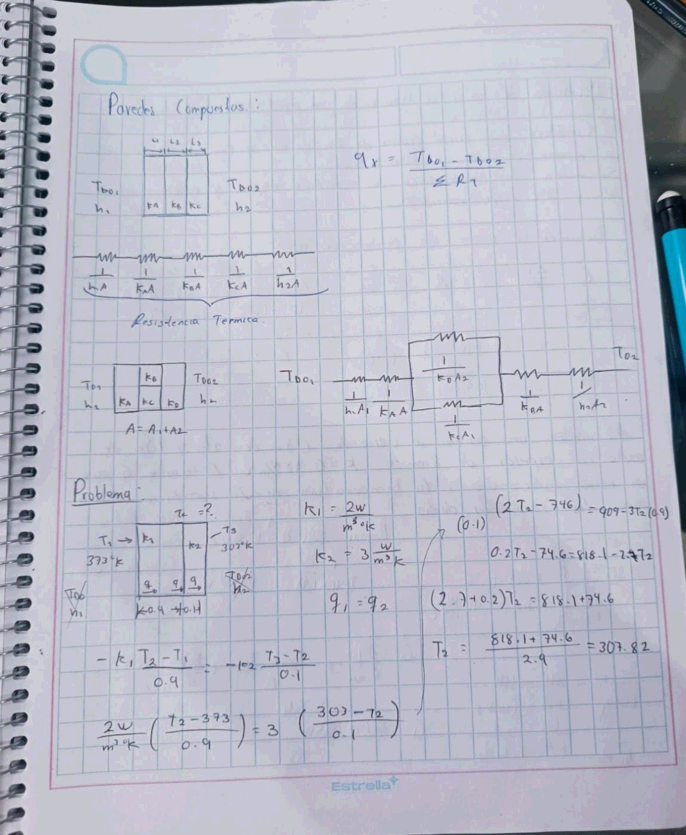 Paredes Compuestas:
L1 L2 L3
T∞1
h1
KA KB KC
T∞2
h2
qx = (T∞1 - T∞2) / (Σ RT)
1/hA 1/KAA 1/KBA 1/KCA 1/h2A
Resistencia Termica
KB
KA KC KD
T∞2
A = A1+A2
T∞1
1/h1A1 1/KAA 1/KBA2 1/KCA1
Problema:
T2 = ?
T1 → K1 K2 T3
373°K 303°K
q q q
0.9 0.1
K1 = 2w/m³°k
K2 = 3 w/m³K
q1 = q2
- K1 (T2 - T1)/0.9 = -K2 (T3 - T2)/0.1
2w/m³°k ((T2 - 373)/0.9) = 3 ((303 - T2)/0.1)
(0.1) (2T2 - 746) = 909 - 3T2 (0.9)
0.2T2 - 74.6 = 818.1 - 2.7T2
(2.7+0.2)T2 = 818.1+74.6
T2 = (818.1 + 74.6)/2.9 = 307.82
Estrella